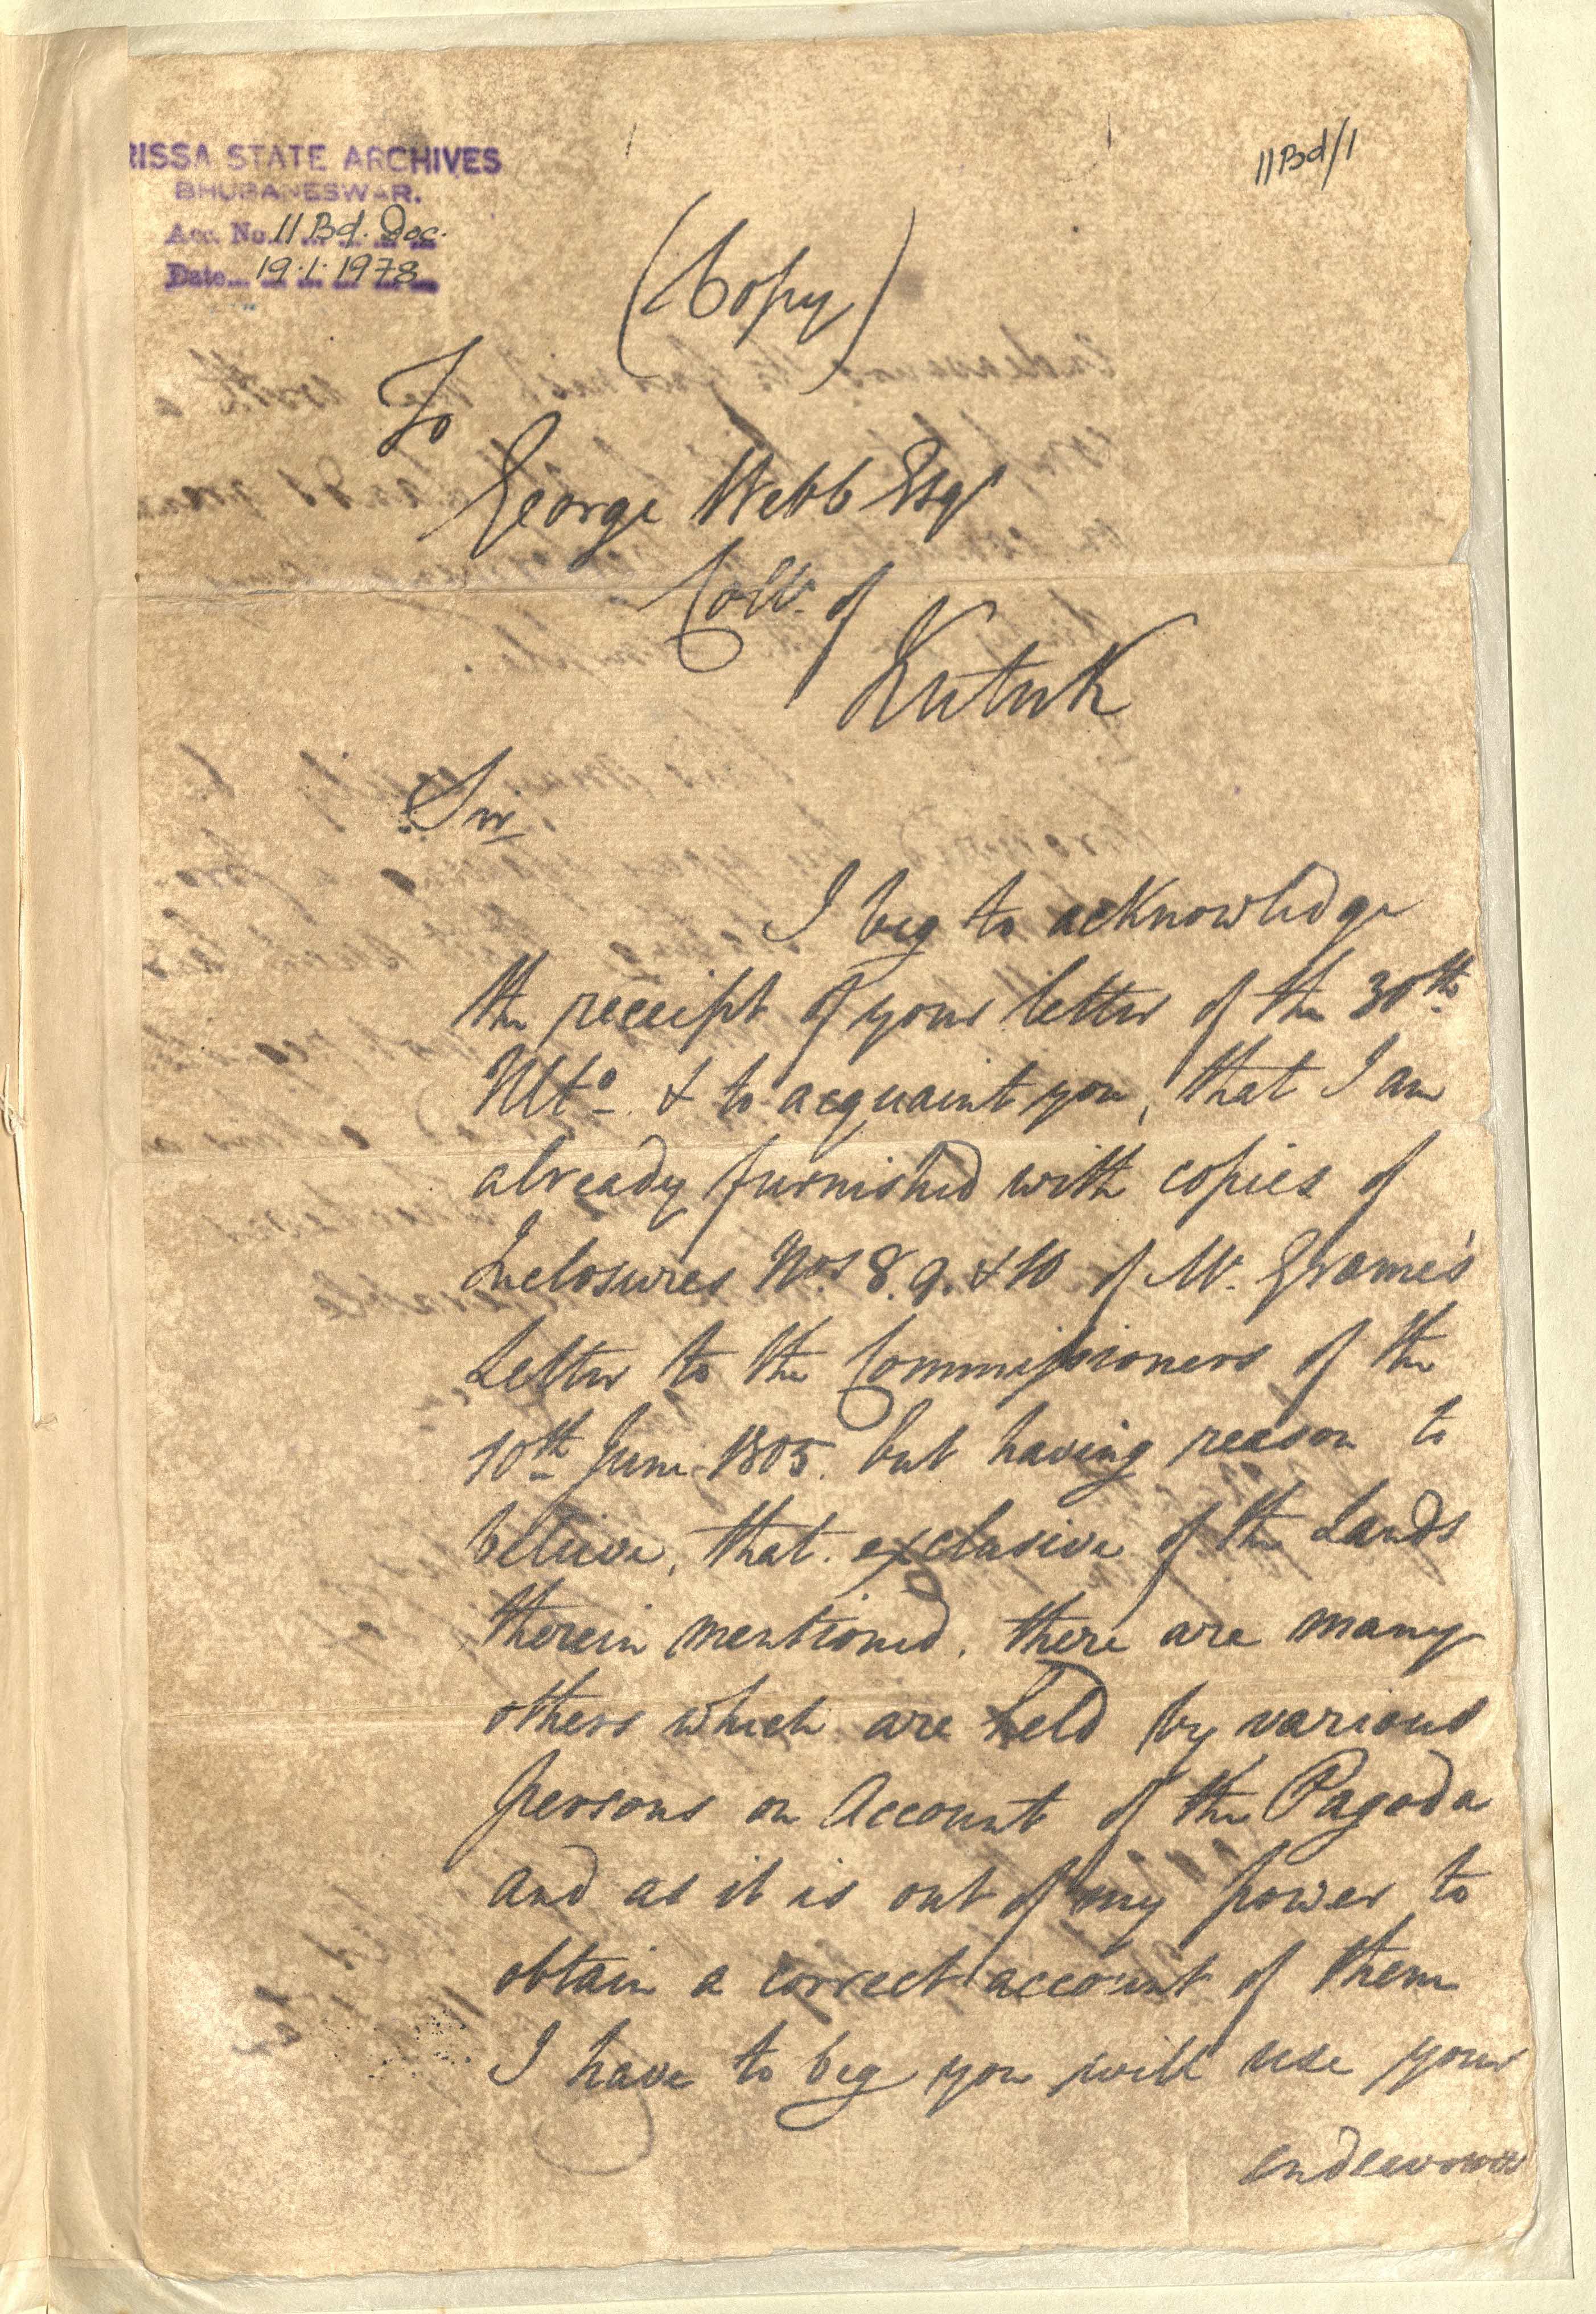 RISSA STATE ARCHIVES
BHUBANESWAR.
Acc. No. 11 Bd. Doc.
Date... 19.1.1978
11Bd/1
(Copy)
To
George Webb Esqr
Collr. of
Kutuk
Sir,
I beg to acknowledge
the receipt of your letter of the 30th
Ulto. & to acquaint you, that I am
already furnished with copies of
Inclosures Nos 8. 9. & 10 of Mr. Grame's
Letter to the Commissioners of the
10th June 1805. but having reason to
believe, that. exclusive of the Lands
therein mentioned. there are many
others which are held by various
persons on Account of the Pagoda
and as it is out of my power to
obtain a correct account of them
I have to beg you will use your
endeavours